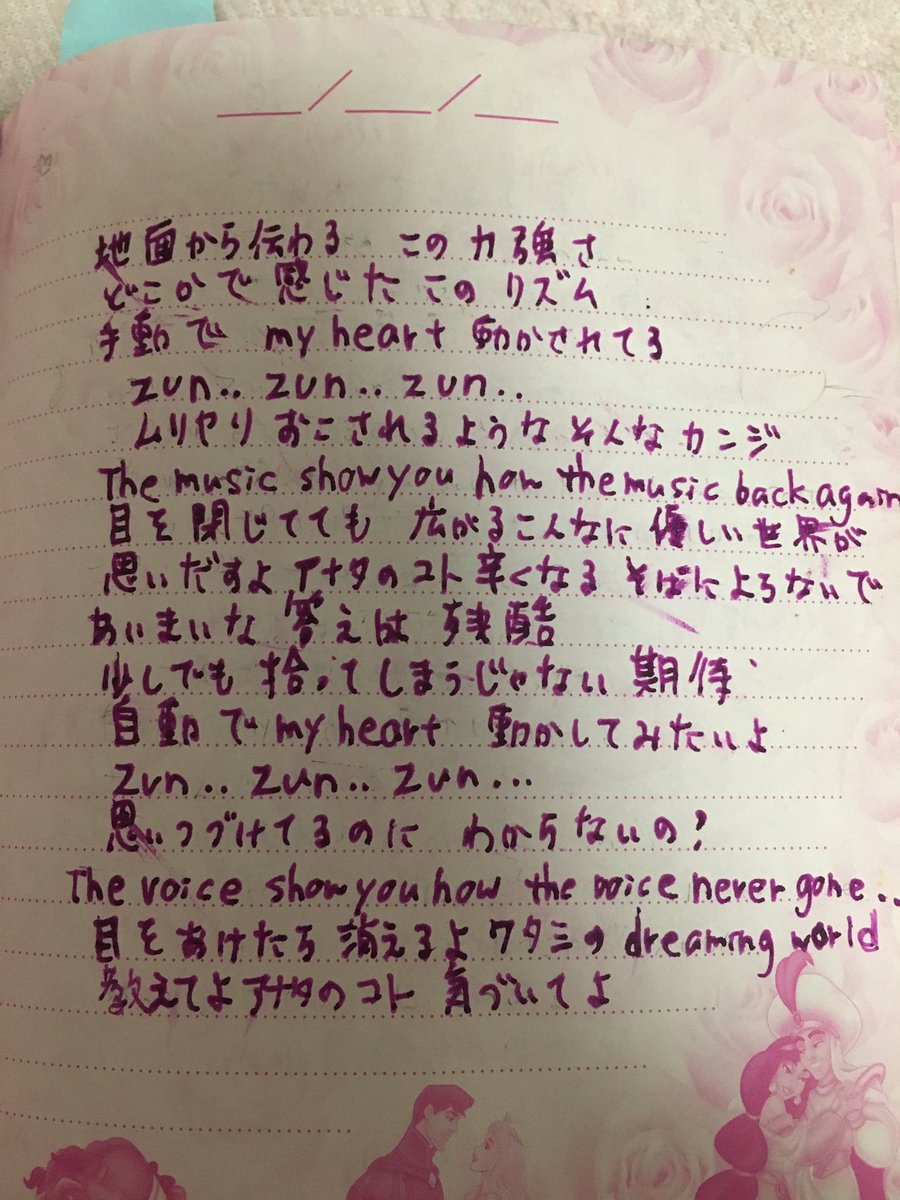 地面から伝わる この力強さ
どこかで感じたこのリズム
手動で my heart 動かされてる
zun.. zun.. zun..
ムリヤリおこされるようなそんなカンジ
The music show you how the music back again
目を閉じてても 広がるこんなに優しい世界が
思いだすよアナタのコト辛くなるそばによらないで
あいまいな答えは残酷
少しでも拾ってしまうじゃない期待
自動で my heart 動かしてみたいよ
zun.. zun.. zun...
思いつづけてるのに わからないの?
The voice show you how the voice never gone..
目をあけたら消えるよワタシの dreaming world
教えてよアナタのコト 気づいてよ